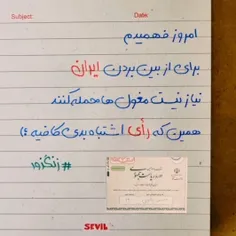 Subject:
Date:
امروز فهمیدم
برای از بین بردن ایران
نیاز نیست مغول ها حمله کنند
همین که رأی اشتباه بدی کافیه :)
#زنگزور
SEVIL